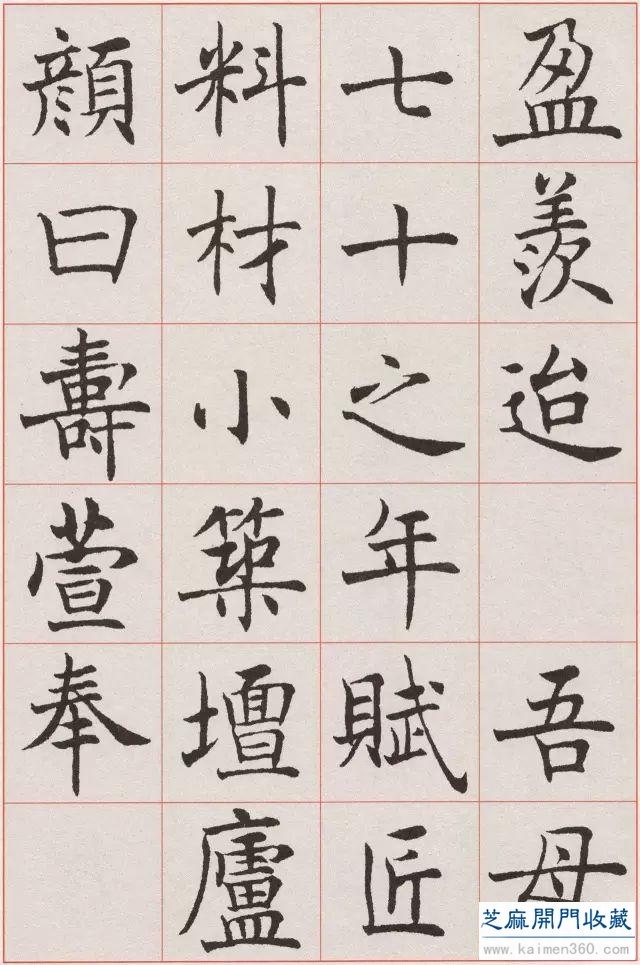 盈羨迨 吾母
七十之年賦匠
料材小築壇廬
顔曰壽萱奉
芝麻開門收藏
www.kaimen360.com